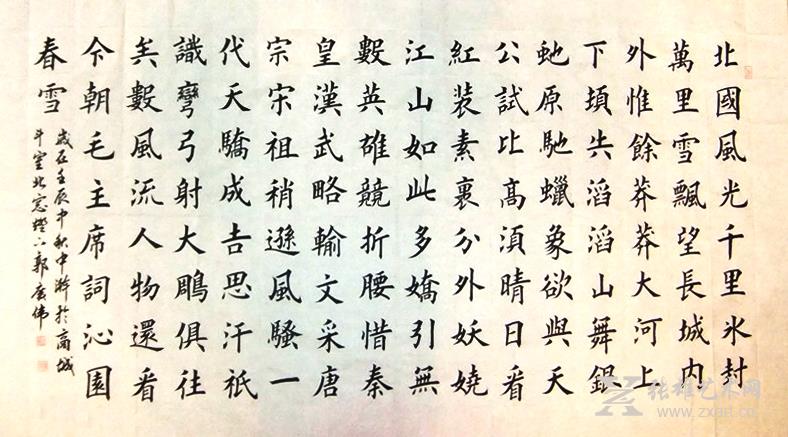 北國風光千里氷封
萬里雪飄望長城内
外惟餘莽莽大河上
下頓失滔滔山舞銀
虵原馳蠟象欲與天
公試比高須晴日看
紅裝素裹分外妖嬈
江山如此多嬌引無
數英雄競折腰惜秦
皇漢武略輸文采唐
宗宋祖稍遜風騷一
代天驕成吉思汗祇
識彎弓射大鵰俱往
矣數風流人物還看
今朝毛主席詞沁園
春雪
歲在壬辰中秋中澣於商城
斗室北窓燈下郭廣偉
张雄艺术网
www.zxart.cn